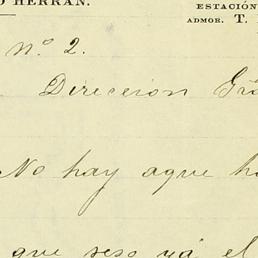 O HERRAN.
ESTACIÓN
ADMOR. T.
nº 2.
Direccion
No hay aque
que seso yá el